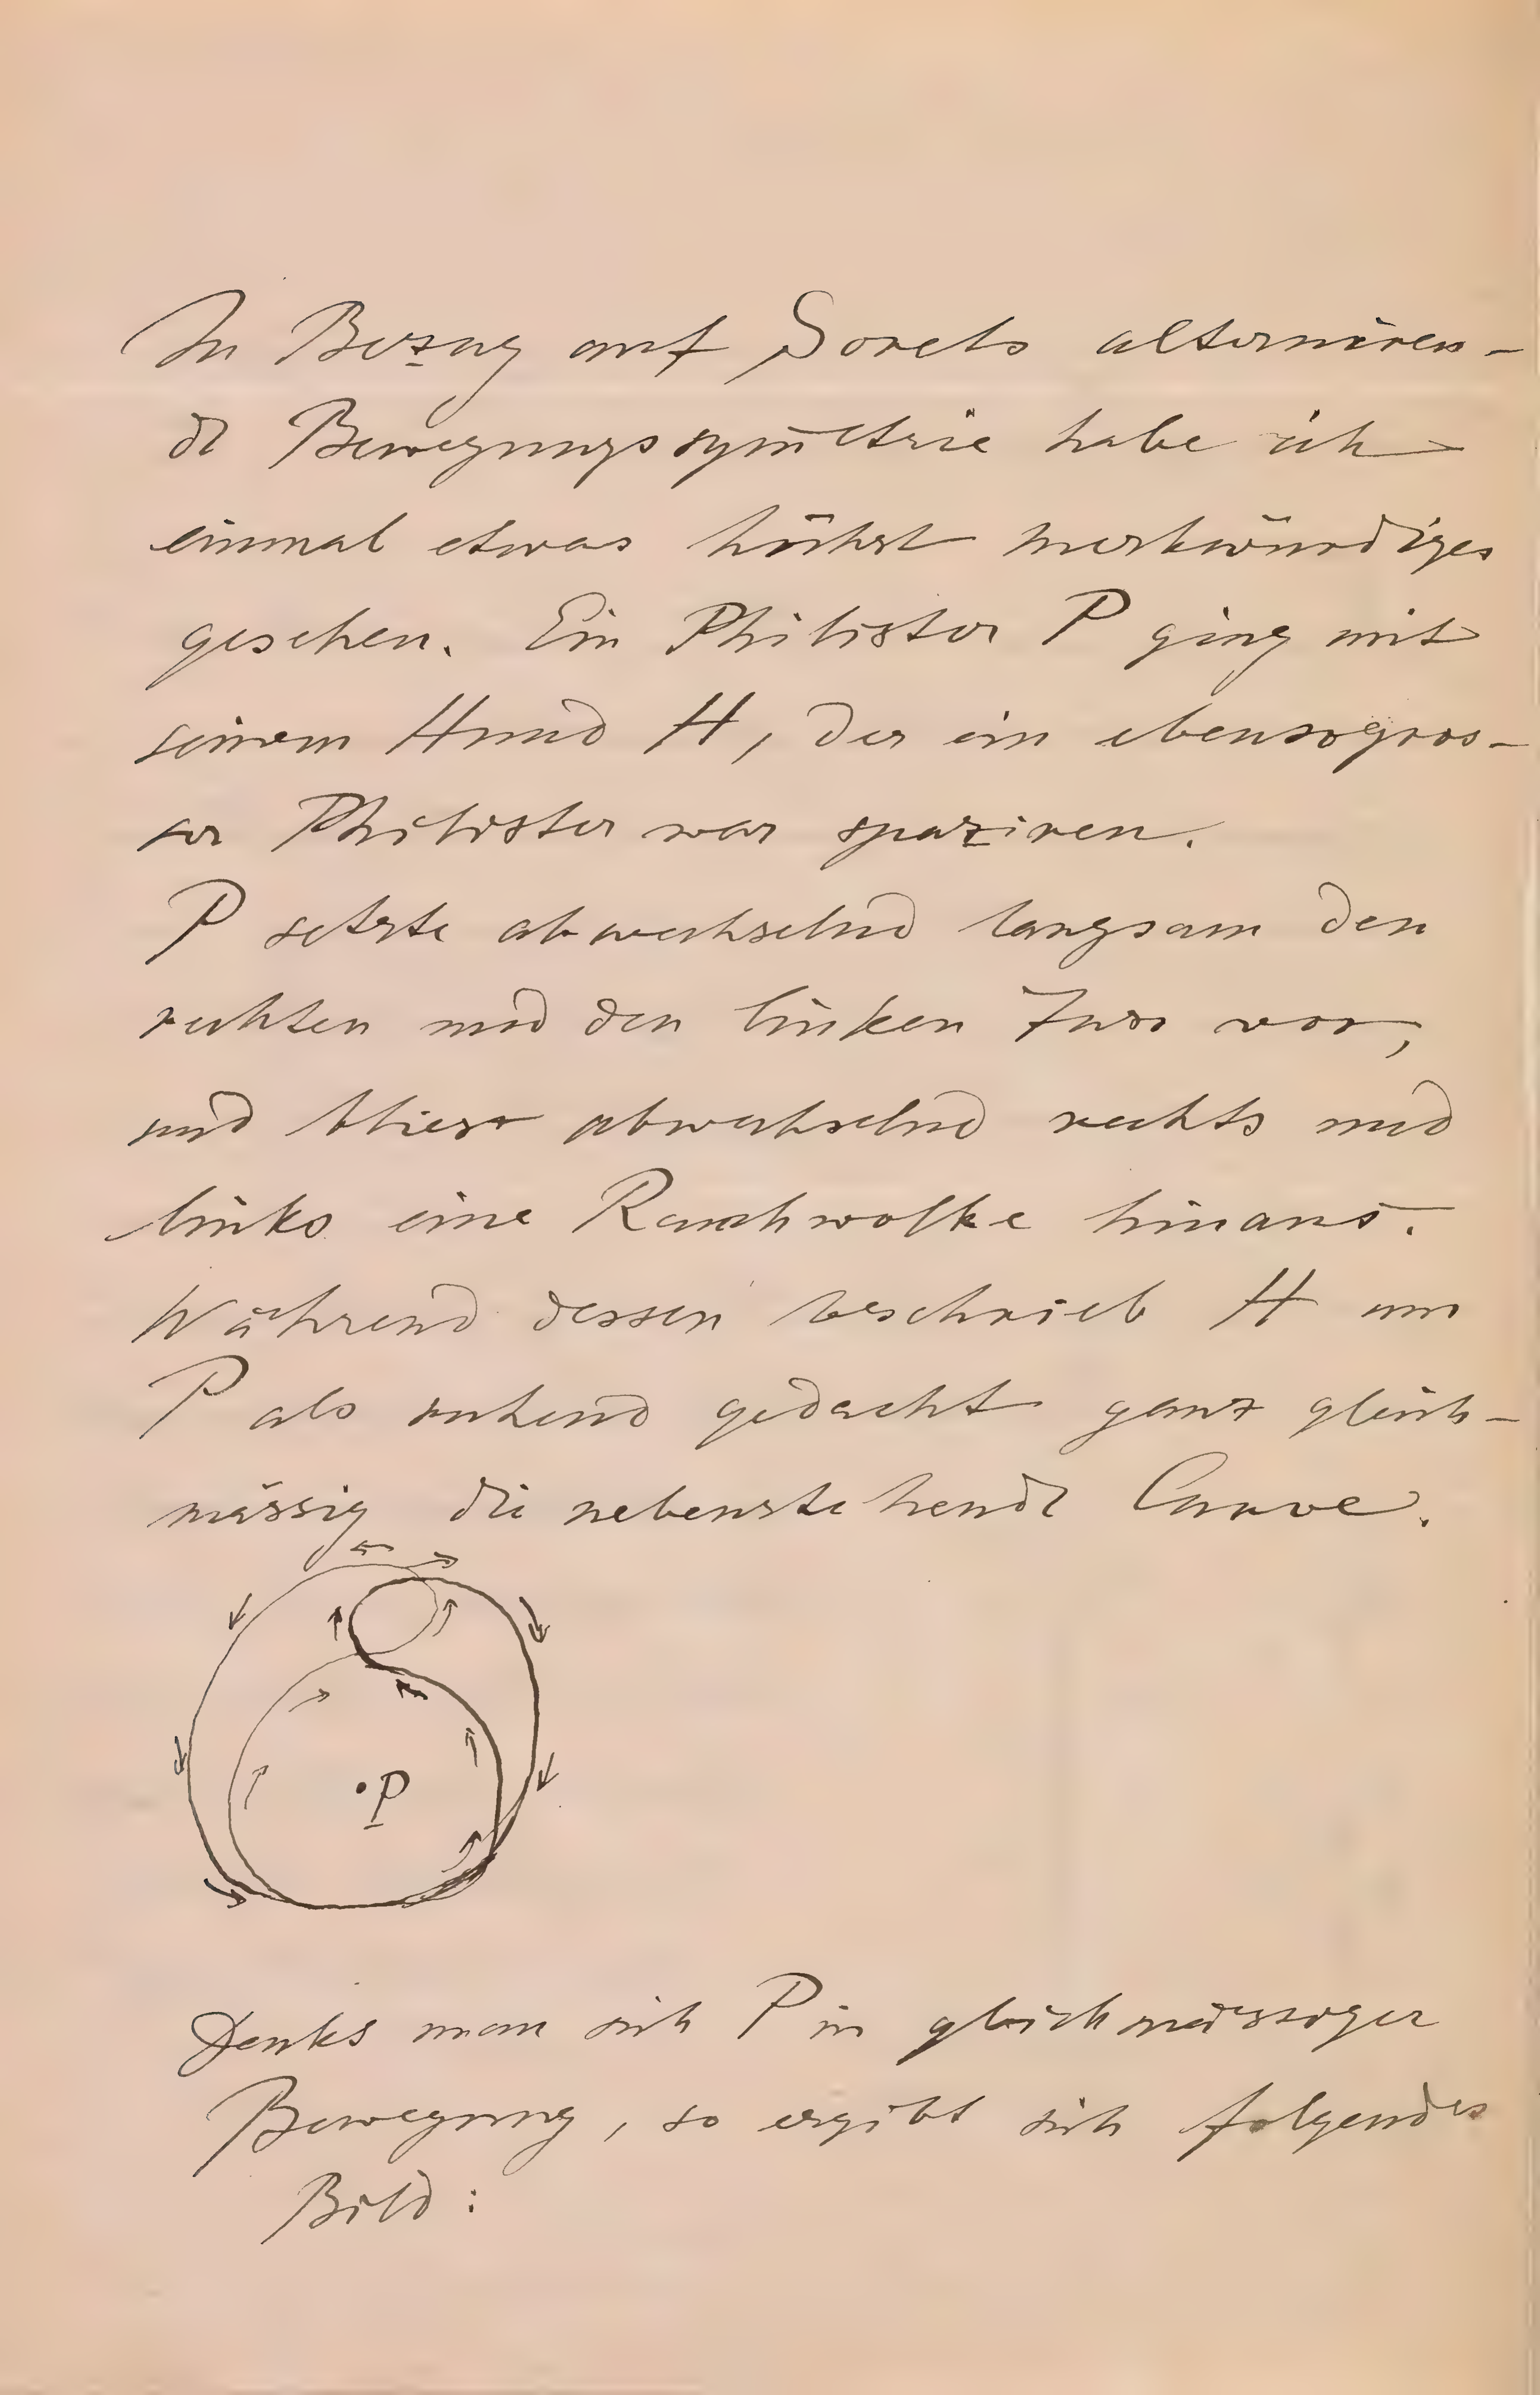 In Bezug auf Sorets alterniren-
de Bewegungssym̅etrie habe ich
einmal etwas höchst merkwürdiges
gesehen. Ein Philister P ging mit
seinem Hund H, der ein ebensogros-
ser Philister war spaziren.
P setzte abwechselnd langsam den
rechten und den linken Fuss vor,
und bliess abwechselnd rechts und
links eine Rauchwolke hinaus.
Während dessen beschrieb H um
P als ruhend gedacht ganz gleich-
mässig die nebenstehende Curve.
P
Denkt man sich P in gleichmässiger
Bewegung, so ergibt sich folgendes
Bild: